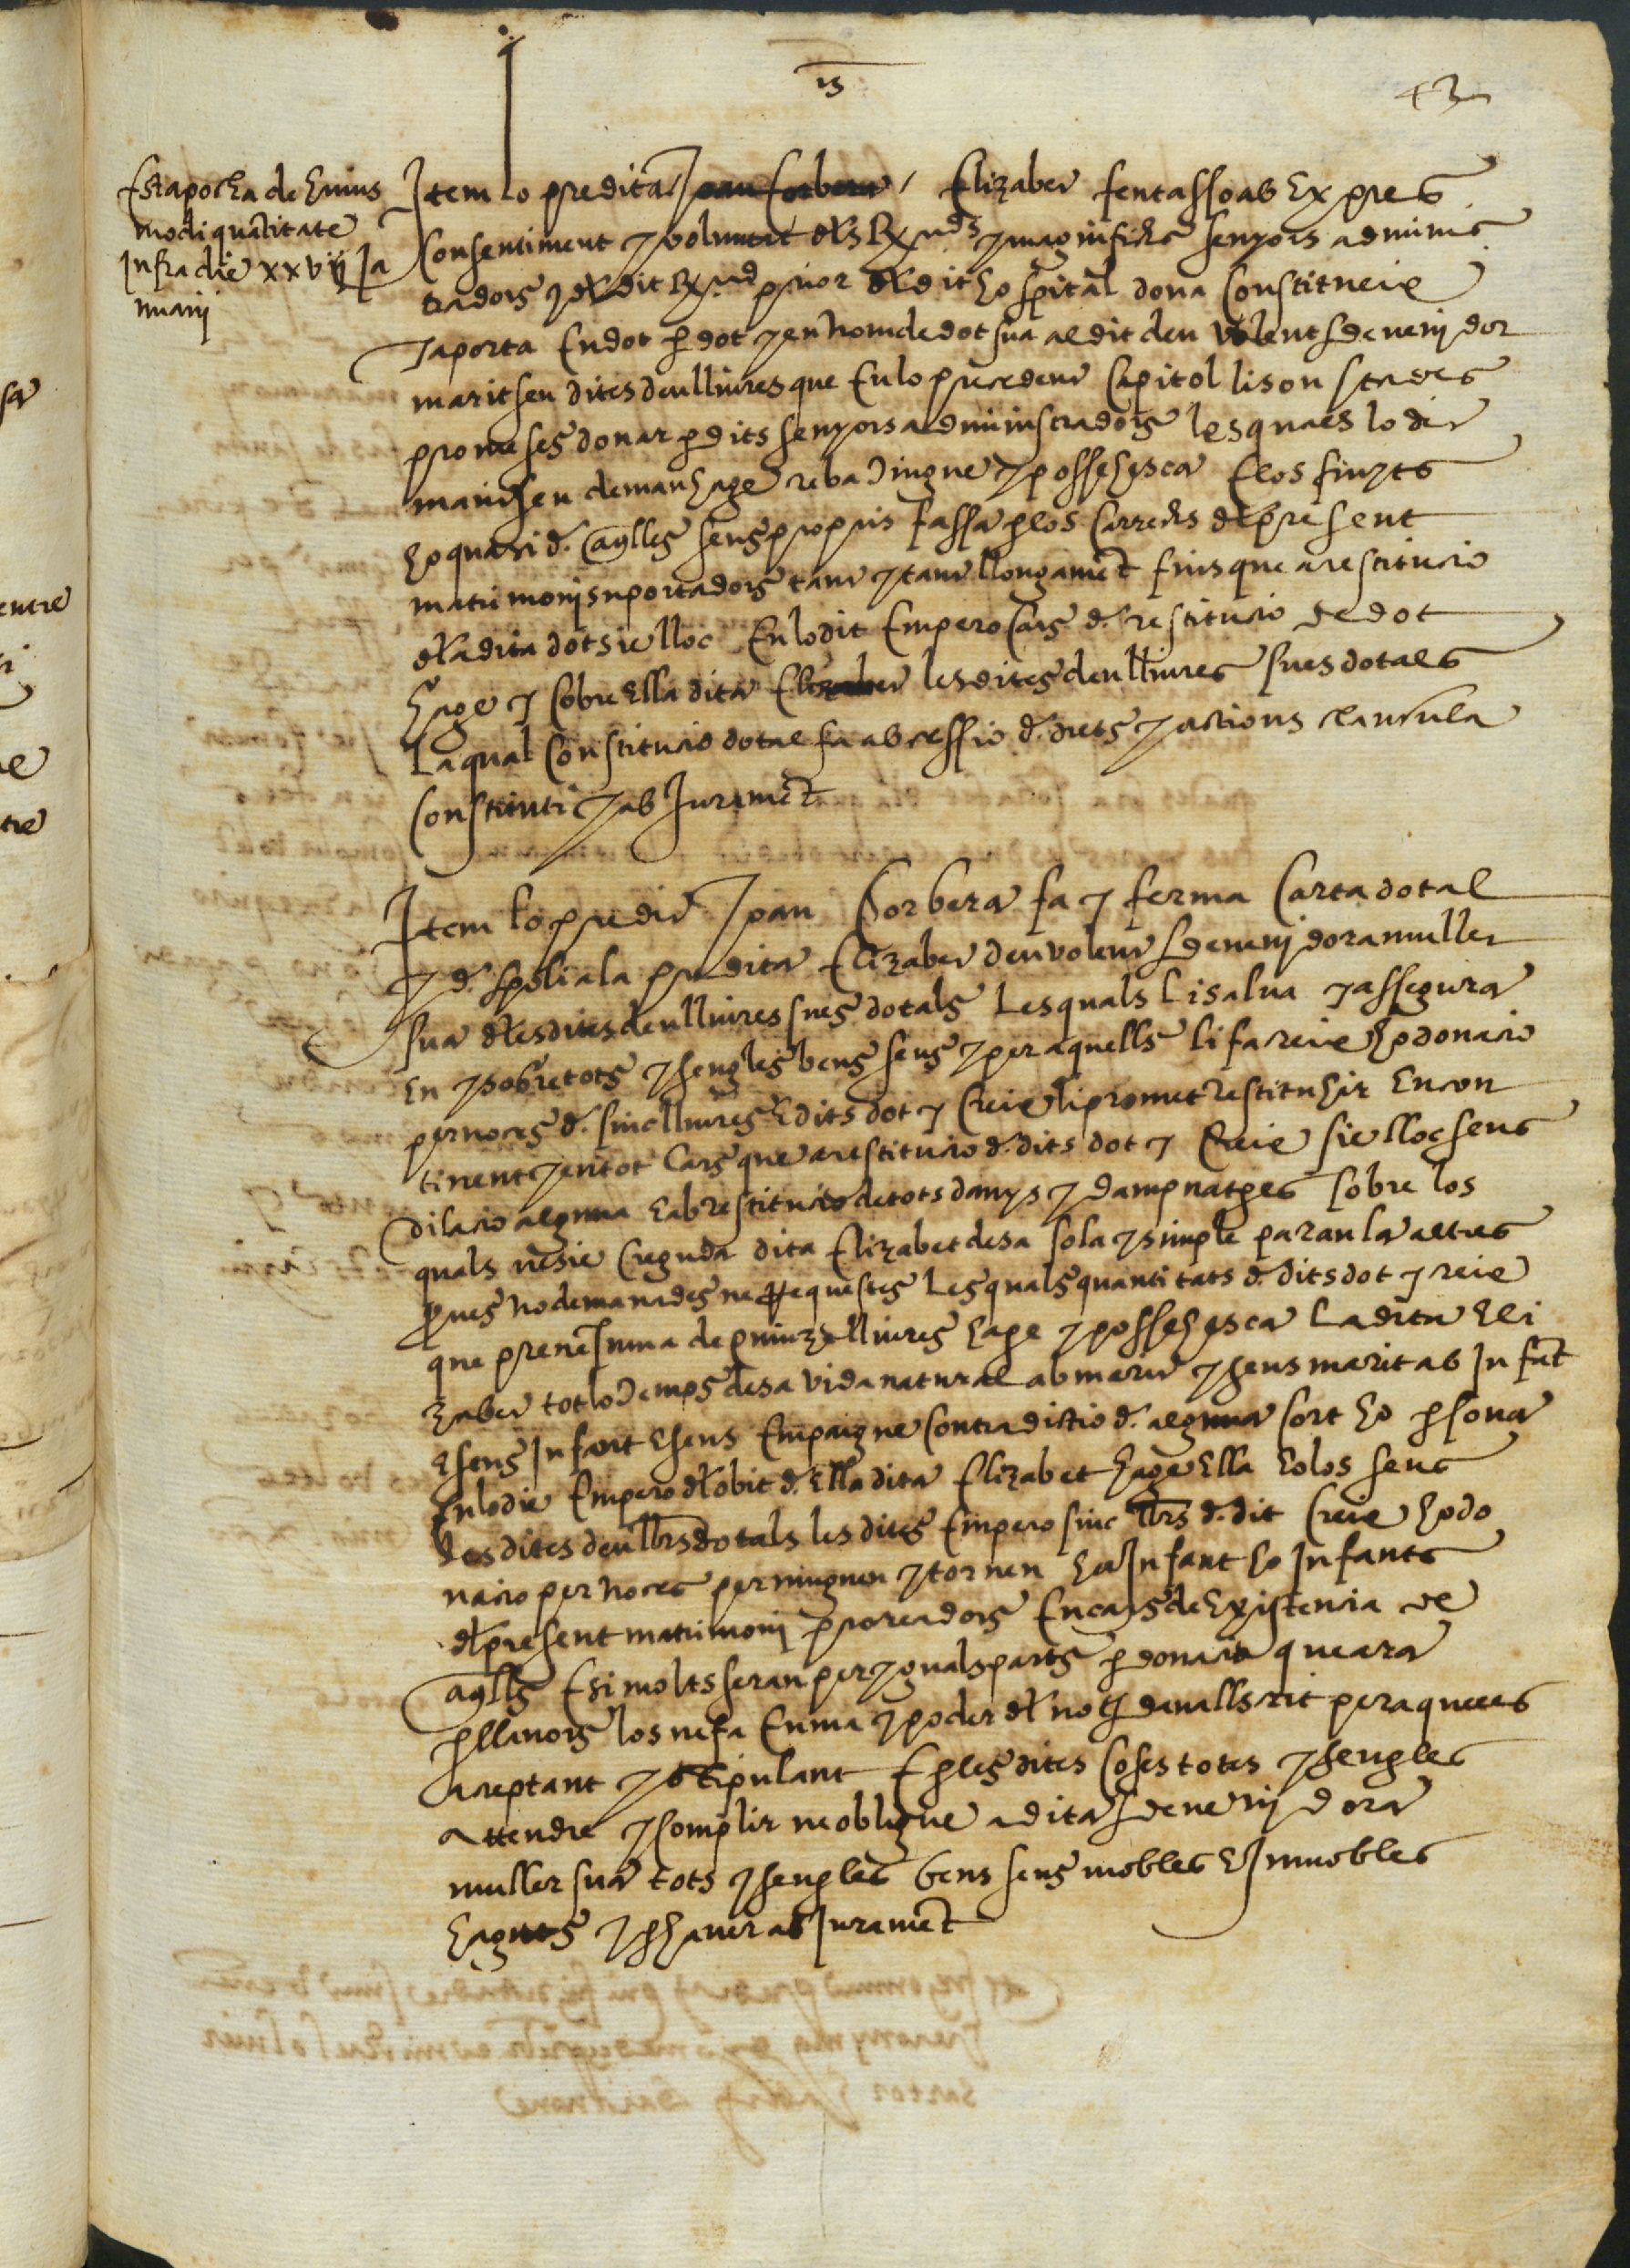 is
43
Est apocha de huius
modi quantitate
Infra die xxviij Ja
nuarij
Item lo predita Joan Corbera / Elizabet fent asso ab expres
Consentiment y voluntat dels Rxnds y magnifichs senyors adminis
tradors y del dit Rxnt prior del dit hospital dona Constitueix
y aporta En dot per dot y en nom de dot sua al dit deu volent sdevenijdor
marit seu dites deu lliures que En lo precedent Capitol li son stades
promeses donar per dits senyors administradors les quals lo dit
marit seu deman hage reba Tingue y possehesca E los fruyts
ho quasi de aqlles seus propris fassa per los Carrechs del present
matrimonj suportadors tant y tant llongament fins que a restitucio
de la dita dot sie lloc En lo dit Empero Cars de restitucio de dot
hage y Cobre Ella dita Elizabet les dites deu lliures sues dotals
La qual Constitucio dotal fa ab cessio de drets y actions clausula
Constituti y ab Jurament
Item lo predit Joan Corbera fa y ferma Carta dotal
y de spoli a la predita Elizabet deu volent sdevenijdora muller
sua de les dites deu lliures sues dotals Les quals li salva y assegura
En y sobre tots y sengles bens seus y per aquells li fa creix ho donacio
per noces de sinc lliures Edits dot y Creix li promet restituhir Encon
tinent y en tot Cars que a restitucio de dits dot y Creix sie lloc sens
dilacio alguna E ab restitucio de tots danys y dampnatges sobre los
quals ne sie Creguda dita Elizabet de sa sola y simple paraula altres
proves no demanades ne requestes Les quals quantitats de dits dot y creix
que prenen suma de quinze lliures hage y possehesca La dita Eli
zabet tot lo Temps de sa vida natural ab marit y sens marit ab Infant
E sens Infant E sens Empaigne Contradictio de alguna sort ho psona
En lo die Empero del obit de Ella dita Elizabet hage Ella E o los seus
Les dites deu llrs dotals les dites Empero sinc llrs de dit Creix ho do
nacio per noces perviuguen y tornen ha Infant ho Infants
del present matrimonj procreadors En cars de Existencia de
aqlls E si molts seran per yguals parts per donacio que ara
per llavors los ne fa En ma y poder del not devall scrit per aquells
acceptant y stipulant E per les dites Coses totes y sengles
attendre y Complir ne obligue a dita sdevenijdora
muller sua tots y sengles bens seus mobles E Inmobles
haguts y per haver ab Jurament